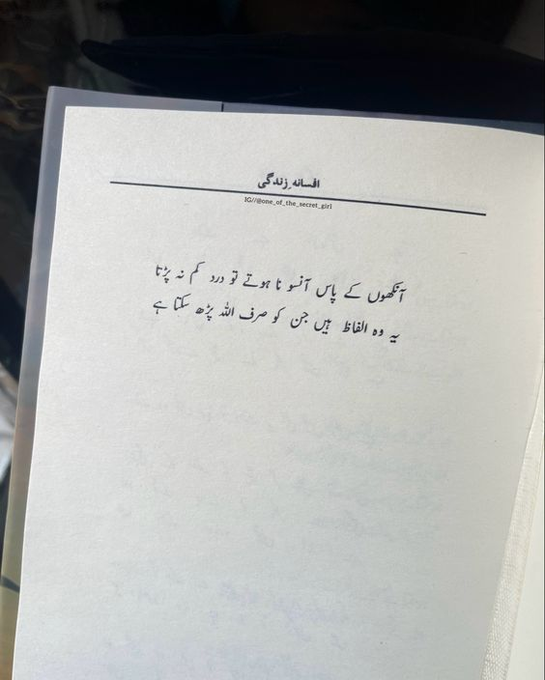 افسانہ زندگی
IG//@one_of_the_secret_girl
آنکھوں کے پاس آنسو نا ہوتے تو درد کم نہ پڑتا
یہ وہ الفاظ ہیں جن کو صرف اللہ پڑھ سکتا ہے